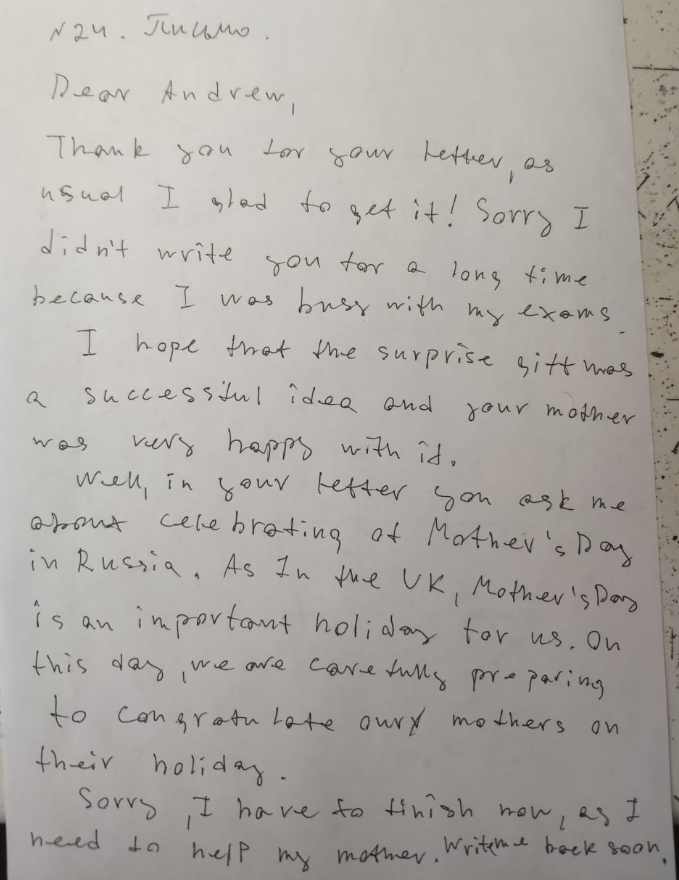 N24. Письмо.
Dear Andrew,
Thank you for your letter, as
usual I glad to get it! Sorry I
didn't write you for a long time
because I was busy with my exams.
I hope that the surprise gift was
a successful idea and your mother
was very happy with it.
Well, in your letter you ask me
about celebrating of Mother's Day
in Russia. As In the UK, Mother's Day
is an important holiday for us. On
this day, we are carefully preparing
to congratulate our mothers on
their holiday.
Sorry, I have to finish now, as I
need to help my mother. Write me back soon.